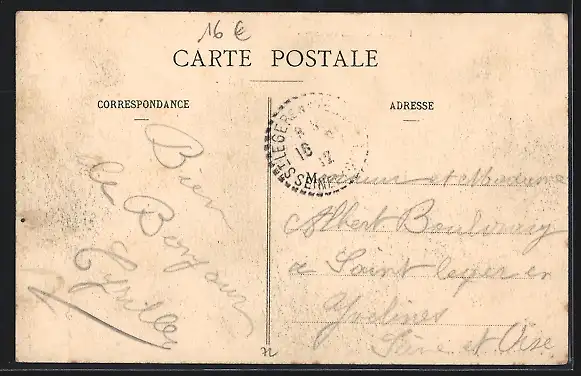 16 €
CARTE POSTALE
CORRESPONDANCE
ADRESSE
ST LEGER
8
16
12
SEINE
Bien
de Bonjour
Cyrille
Monsieur et Madame
Albert
a Saint leger en
Yvelines
Seine et Oise
72